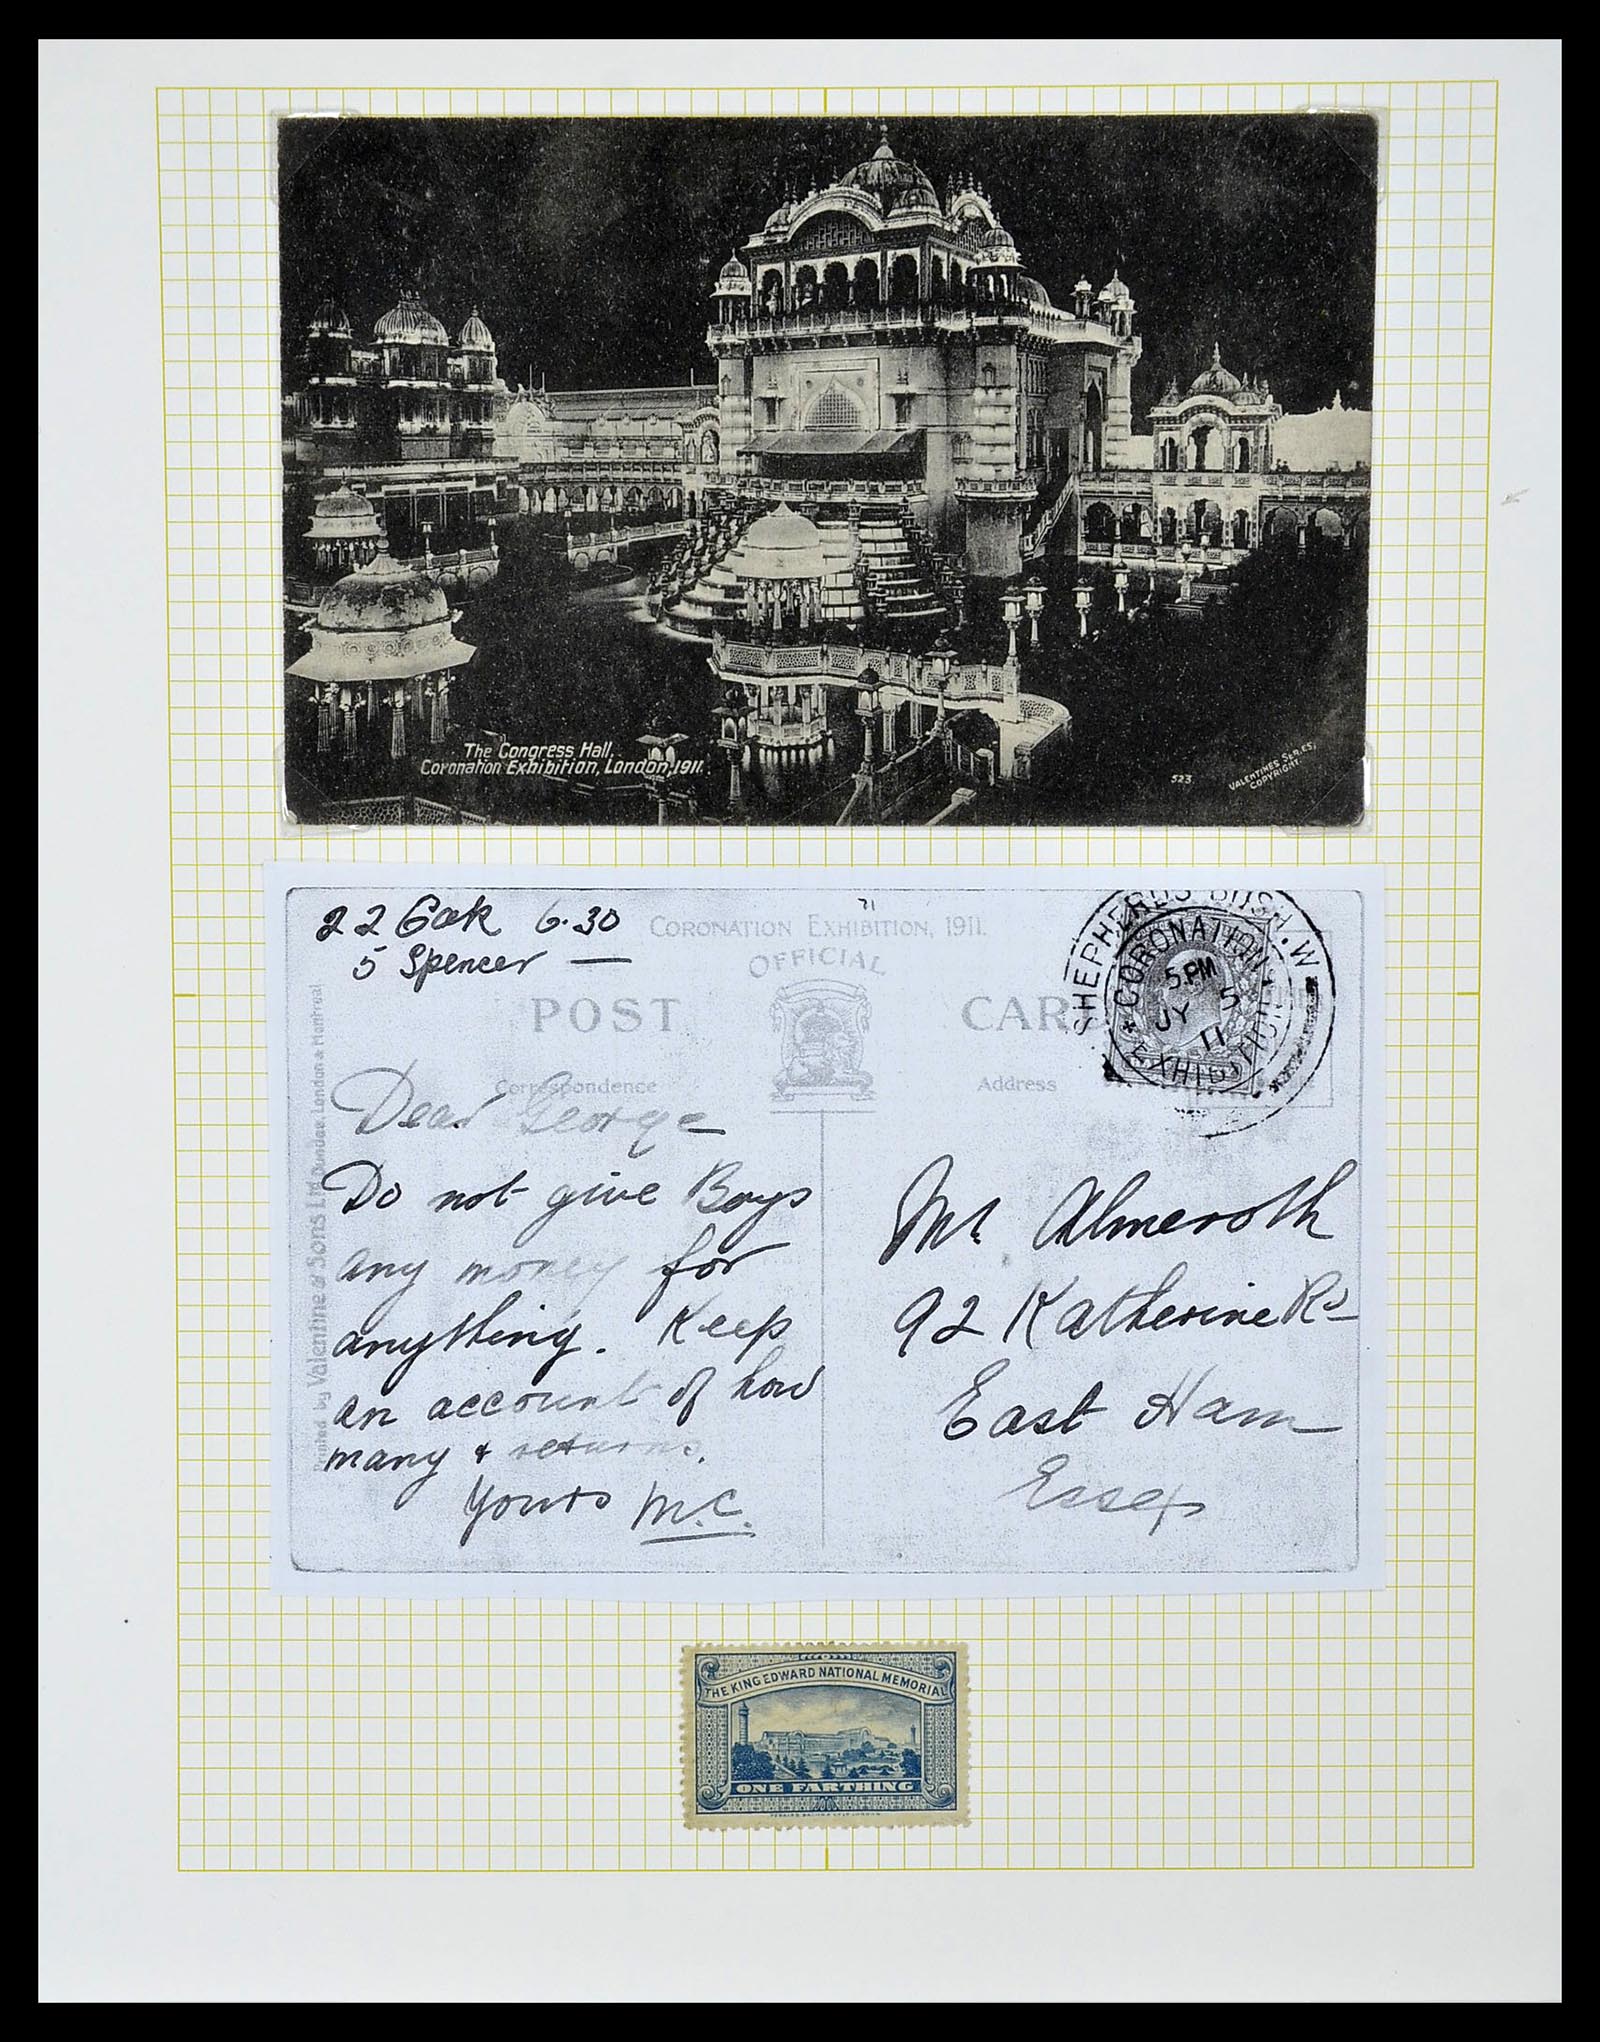 The Congress Hall,
Coronation Exhibition, London, 1911.
523
VALENTINES SERIES,
COPYRIGHT.
22 6.30
5 Spencer
71
CORONATION EXHIBITION, 1911.
OFFICIAL
POST CARD
Correspondence
Address
SHEPHERDS BUSH. W
* CORONATION *
EXHIBITION
5. PM
JY 5
11
Printed by Valentine & Sons Ltd Dundee London & Montreal
Dear George
Do not give Boys
any money for
anything. Keep
an account of how
many & returns.
Yours M.C.
Mr Almeroth
92 Katherine Rd
East Ham
Essex
THE KING EDWARD NATIONAL MEMORIAL
ONE FARTHING